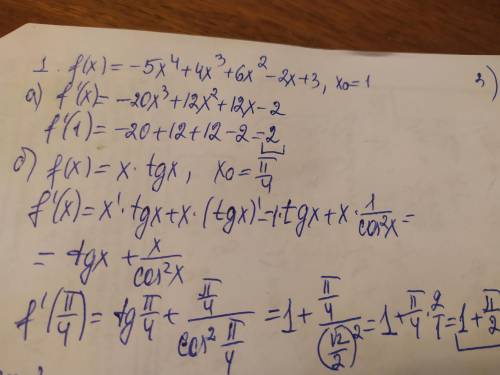 1. f(x) = -5x⁴+4x³+6x²-2x+3, x₀=1
а) f'(x)= -20x³+12x²+12x-2
f'(1)= -20+12+12-2=2
б) f(x)= x· tgx, x₀= π/4
f'(x)= x'·tgx+x·(tgx)'=1·tgx+x·1/cos²x=
= tgx + x/cos²x
f'(π/4)= tg π/4 + (π/4)/(cos² π/4) = 1+ (π/4)/(√2/2)² =1+ π/4 · 2/1 = 1+ π/2